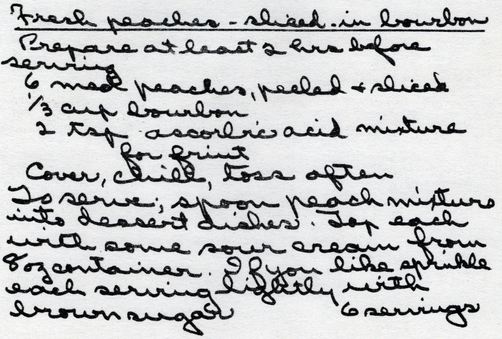 Fresh peaches - sliced - in bourbon
Prepare at least 2 hrs before
serving
6 med peaches, peeled + sliced
1/3 cup bourbon
2 tsp ascorbic acid mixture
for fruit
Cover, chill, toss often
To serve; spoon peach mixture
into dessert dishes. Top each
with some sour cream from
8 oz container. If you like sprinkle
each serving lightly with
brown sugar 6 servings